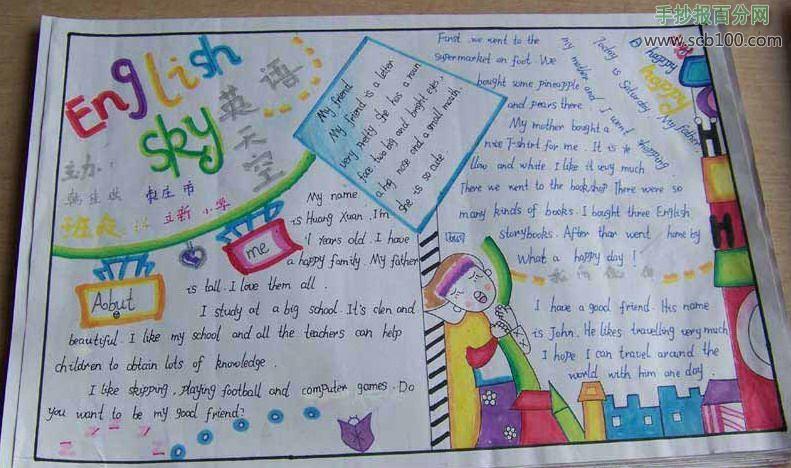 手抄报百分网
www.scb100.com
English
sky
英语
天空
主办:
枣庄市
立新小学
My friend
My friend is a letter
very pretty she has a roun
face two big and bright eyes,
a big nose and a small mouth.
she is so cute
Aobut
me
My name
is Huang Xuan. I'm
11 years old. I have
a happy family. My father
is tall. I love them all.
I study at a big school. It's clen and
beautiful. I like my school and all the teachers can help
children to obtain lots of knowledge.
I like skipping, playing football and computer games. Do
you want to be my good friend?
A happy
Today is Saturday. My father,
my mother and I went shopping.
First we went to the
supermarket on foot. We
bought some pineapple
and pears there.
My mother bought a
nice T-shirt for me. It is
llow and white I like it very much.
There we went to the bookshop There were so
many kinds of books. I bought three English
storybooks. After than went home by
bus
What a happy day!
I have a good friend. His name
is John. He likes travelling very much
I hope I can travel around the
world with him one day.